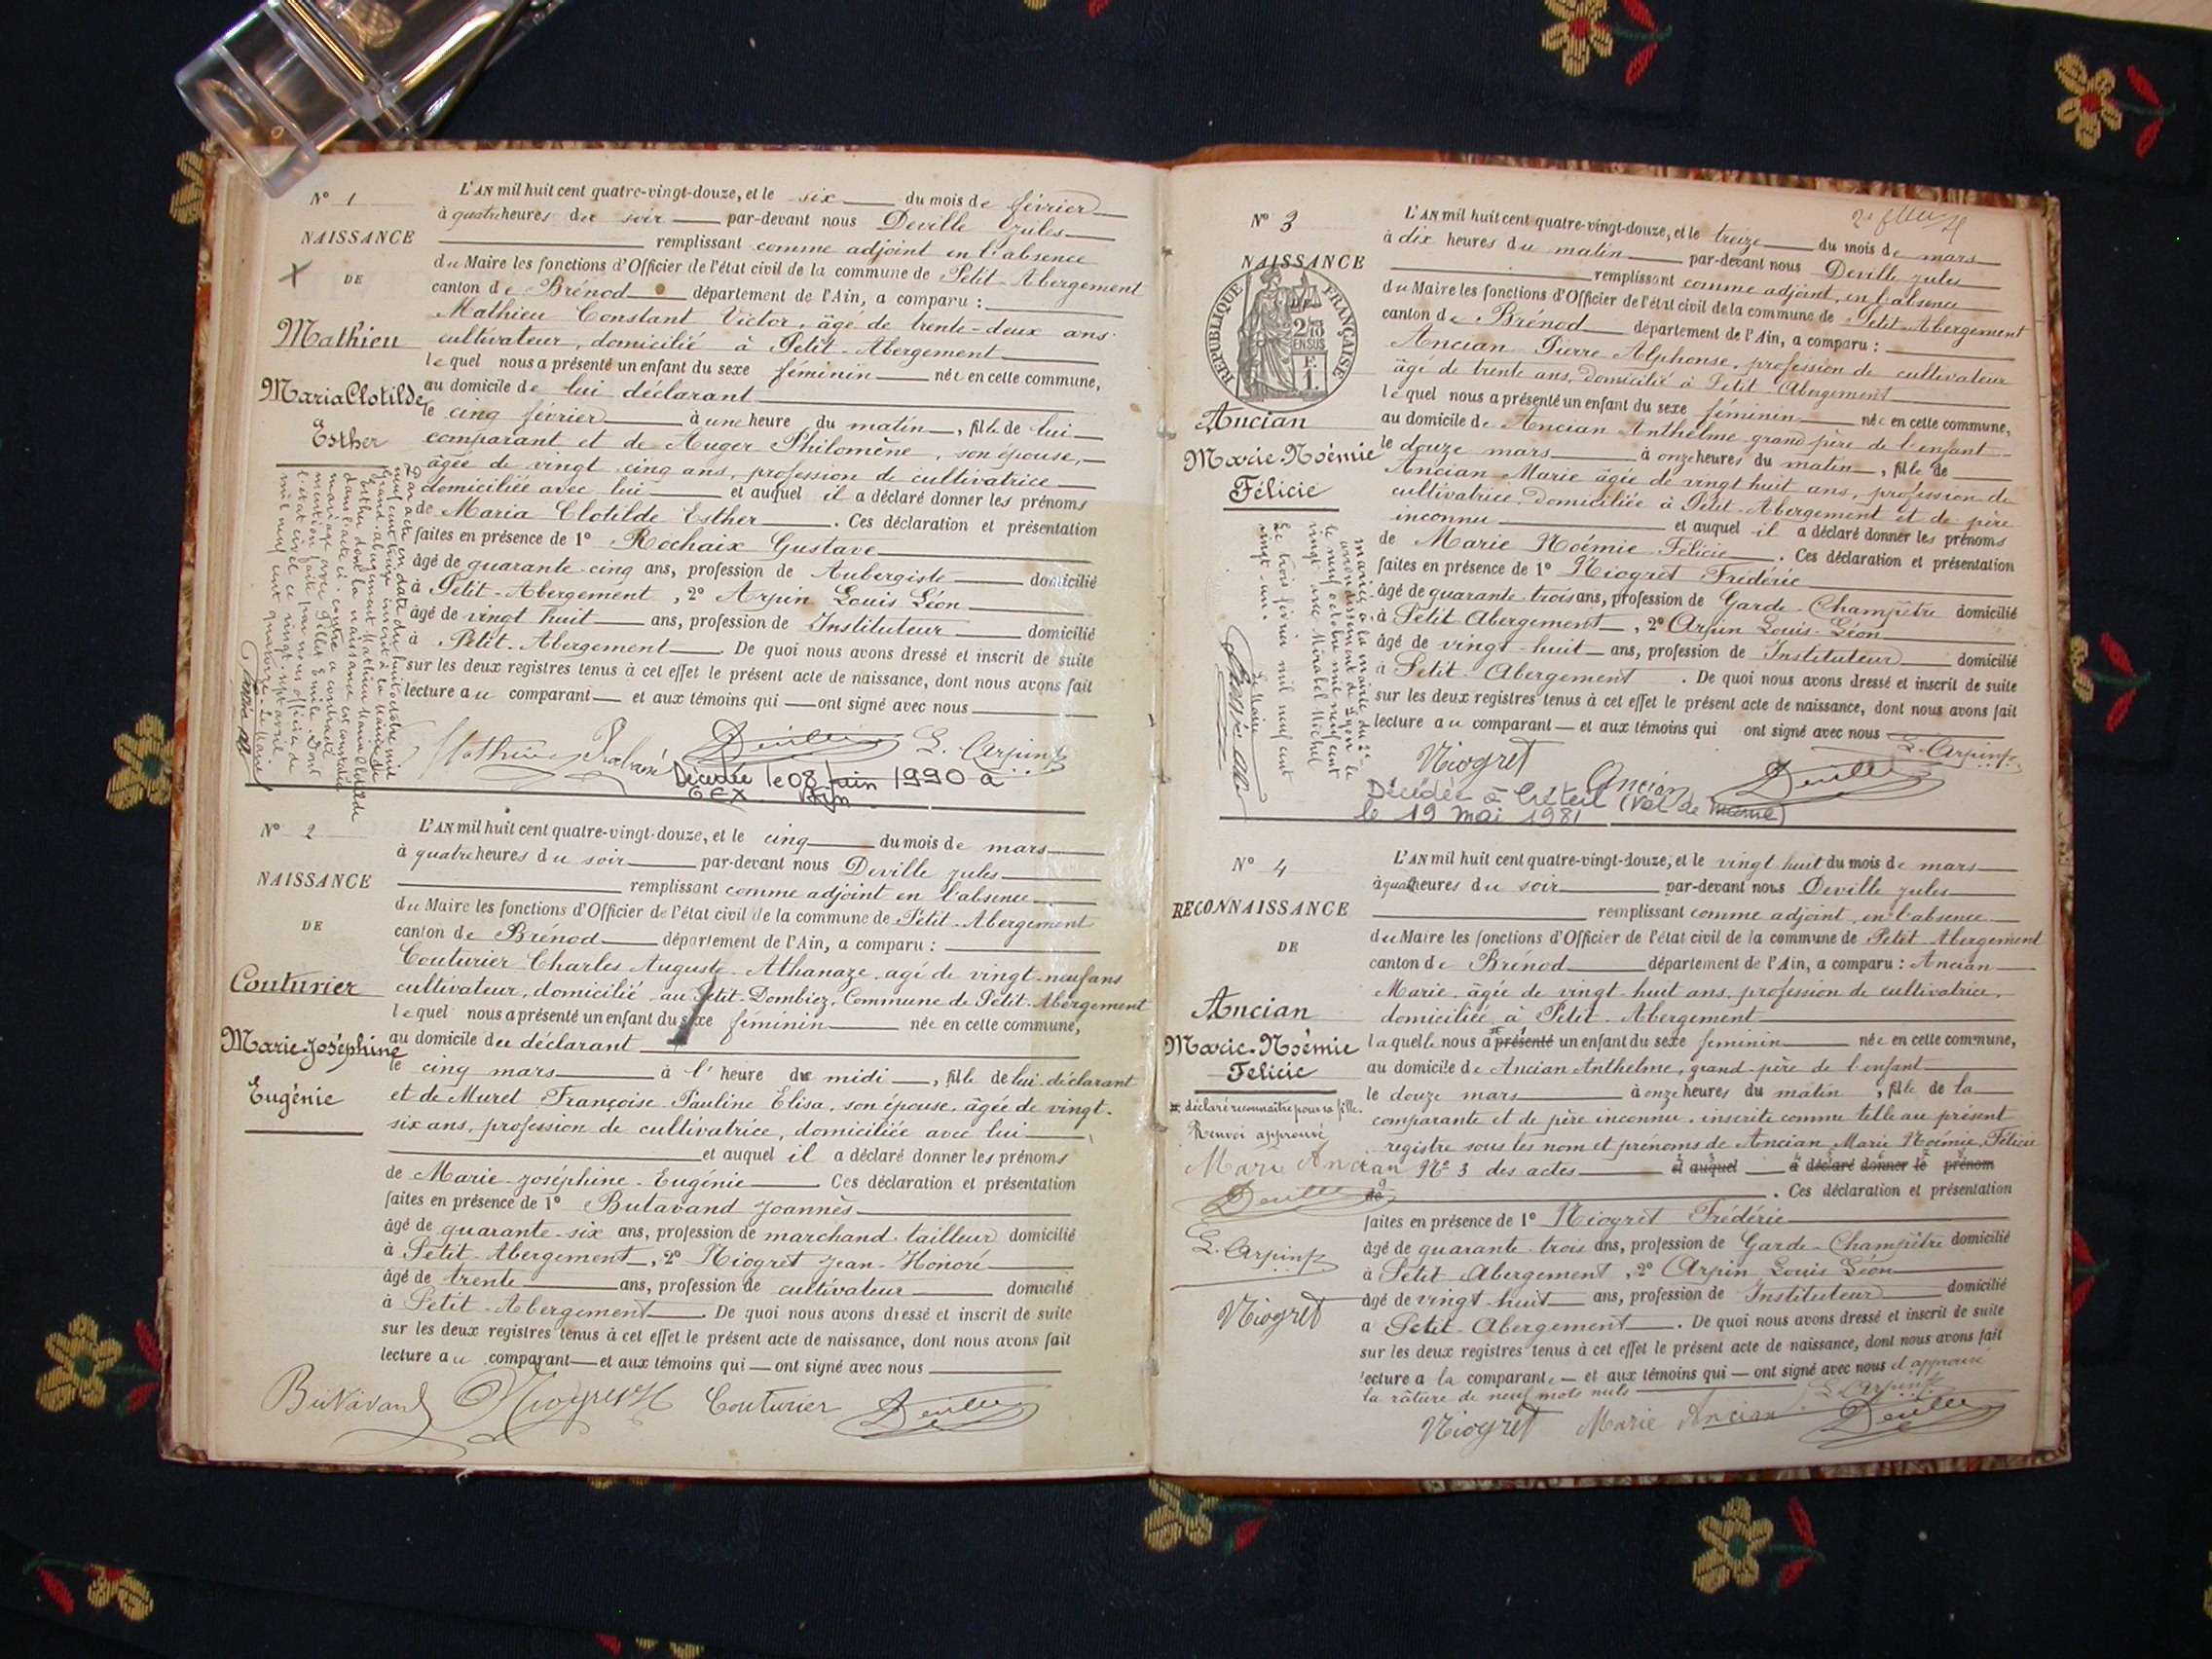 N° 1
NAISSANCE
DE
Mathieu
Maria Clotilde
Esther
L'AN mil huit cent quatre-vingt-douze, et le six du mois de février
à quatre heures du soir par-devant nous Deville Jules
remplissant comme adjoint en l'absence
du Maire les fonctions d'Officier de l'état civil de la commune de Petit-Abergement
canton de Brénod département de l'Ain, a comparu :
Mathieu Constant Victor, âgé de trente-deux ans
cultivateur, domicilié à Petit-Abergement
lequel nous a présenté un enfant du sexe féminin née en cette commune,
au domicile de lui déclarant
le cinq février à une heure du matin, fille de lui
comparant et de Auger Philomène, son épouse,
âgée de vingt cinq ans, profession de cultivatrice
domiciliée avec lui et auquel il a déclaré donner les prénoms
de Maria Clotilde Esther. Ces déclaration et présentation
faites en présence de 1° Rochaix Gustave
âgé de quarante-cinq ans, profession de Aubergiste domicilié
à Petit-Abergement, 2° Arpin Louis Léon
âgé de vingt huit ans, profession de Instituteur domicilié
à Petit-Abergement. De quoi nous avons dressé et inscrit de suite
sur les deux registres tenus à cet effet le présent acte de naissance, dont nous avons fait
lecture au comparant et aux témoins qui ont signé avec nous
Par acte en date du huit octobre mil
neuf cent treize inscrit à la Mairie de
Grand-Abergement Mathieu Maria Clotilde
Esther dont la naissance est constatée
dans l'acte ci-contre a contracté
mariage avec Pillet Emile. Dont
mention faite par nous officier de
l'état civil ce vingt-sept avril
mil neuf cent quatorze. Le Maire
Mathieu Deville L. Arpin
Décédée le 08 Juin 1990 à
GEX Ain
N° 2
NAISSANCE
DE
Couturier
Marie-Joséphine
Eugénie
L'AN mil huit cent quatre-vingt-douze, et le cinq du mois de mars
à quatre heures du soir par-devant nous Deville Jules
remplissant comme adjoint en l'absence
du Maire les fonctions d'Officier de l'état civil de la commune de Petit-Abergement
canton de Brénod département de l'Ain, a comparu :
Couturier Charles Auguste-Athanaze, agé de vingt-neuf ans
cultivateur, domicilié au Petit-Dombiez, Commune de Petit-Abergement
lequel nous a présenté un enfant du sexe féminin née en cette commune,
au domicile du déclarant
le cinq mars à l'heure de midi, fille de lui déclarant
et de Muret Françoise Pauline Elisa, son épouse, âgée de vingt-
six ans, profession de cultivatrice, domiciliée avec lui
et auquel il a déclaré donner les prénoms
de Marie-Joséphine-Eugénie Ces déclaration et présentation
faites en présence de 1° Butavand Joannès
âgé de quarante-six ans, profession de marchand-tailleur domicilié
à Petit-Abergement, 2° Niogret Jean-Honoré
âgé de trente ans, profession de cultivateur domicilié
à Petit-Abergement. De quoi nous avons dressé et inscrit de suite
sur les deux registres tenus à cet effet le présent acte de naissance, dont nous avons fait
lecture au comparant et aux témoins qui ont signé avec nous
Butavand Niogret H Couturier Deville
N° 3
NAISSANCE
DE
REPUBLIQUE FRANÇAISE
Ancian
Marie-Noémie
Félicie
L'AN mil huit cent quatre-vingt-douze, et le treize du mois de mars
à dix heures du matin par-devant nous Deville Jules
remplissant comme adjoint, en l'absence
du Maire les fonctions d'Officier de l'état civil de la commune de Petit-Abergement
canton de Brénod département de l'Ain, a comparu :
Ancian Pierre Alphonse, profession de cultivateur
âgé de trente ans, domicilié à Petit-Abergement
lequel nous a présenté un enfant du sexe féminin née en cette commune,
au domicile de Ancian Anthelme grand père de l'enfant
le douze mars à onze heures du matin, fille de
Ancian Marie âgée de vingt huit ans, profession de
cultivatrice, domiciliée à Petit-Abergement et de père
inconnu et auquel il a déclaré donner les prénoms
de Marie Noémie Félicie. Ces déclaration et présentation
faites en présence de 1° Niogret Frédéric
âgé de quarante-trois ans, profession de Garde-Champêtre domicilié
à Petit Abergement, 2° Arpin Louis-Léon
âgé de vingt-huit ans, profession de Instituteur domicilié
à Petit-Abergement. De quoi nous avons dressé et inscrit de suite
sur les deux registres tenus à cet effet le présent acte de naissance, dont nous avons fait
lecture au comparant et aux témoins qui ont signé avec nous
mariée à la mairie du 2e
arrondissement de Lyon le
le neuf octobre mil neuf cent
vingt avec Mirabel Michel
Le trois février mil neuf cent
vingt-un.
Le Maire
Niogret Ancian Deville L. Arpin
Décédée à Créteil (Val de Marne)
le 19 mai 1981
N° 4
RECONNAISSANCE
DE
Ancian
Marie-Noémie
Felicie
L'AN mil huit cent quatre-vingt-douze, et le vingt huit du mois de mars
à quatre heures du soir par-devant nous Deville Jules
remplissant comme adjoint, en l'absence
du Maire les fonctions d'Officier de l'état civil de la commune de Petit-Abergement
canton de Brénod département de l'Ain, a comparu : Ancian
Marie, âgée de vingt-huit ans, profession de cultivatrice,
domiciliée à Petit-Abergement
laquelle nous a présenté un enfant du sexe féminin née en cette commune,
au domicile de Ancian Anthelme, grand-père de l'enfant
le douze mars à onze heures du matin, fille de la
comparante et de père inconnu, inscrite comme telle au présent
registre sous les nom et prénoms de Ancian Marie Noémie Félicie
N° 3 des actes et auquel a déclaré donner le prénom
de. Ces déclaration et présentation
faites en présence de 1° Niogret Frédéric
âgé de quarante-trois ans, profession de Garde-Champêtre domicilié
à Petit-Abergement, 2° Arpin Louis Léon
âgé de vingt-huit ans, profession de Instituteur domicilié
à Petit-Abergement. De quoi nous avons dressé et inscrit de suite
sur les deux registres tenus à cet effet le présent acte de naissance, dont nous avons fait
lecture a la comparante et aux témoins qui ont signé avec nous et approuvé
la râture de neuf mots nuls
déclaré reconnaître pour sa fille.
Renvoi approuvé
Marie Ancian
Deville
L. Arpin
Niogret
Niogret Marie Ancian L. Arpin Deville